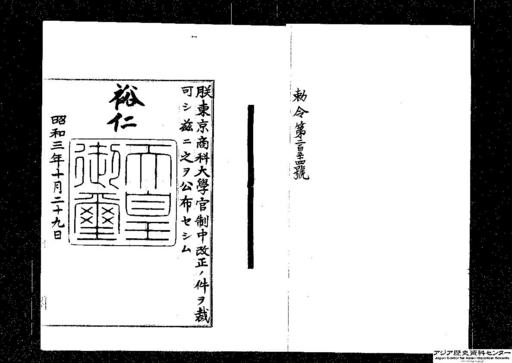 朕東京商科大學官制中改正ノ件ヲ裁
可シ茲ニ之ヲ公布セシム
裕仁
天皇
御璽
昭和三年十月二十九日
アジア歴史資料センター
Japan Center for Asian Historical Records